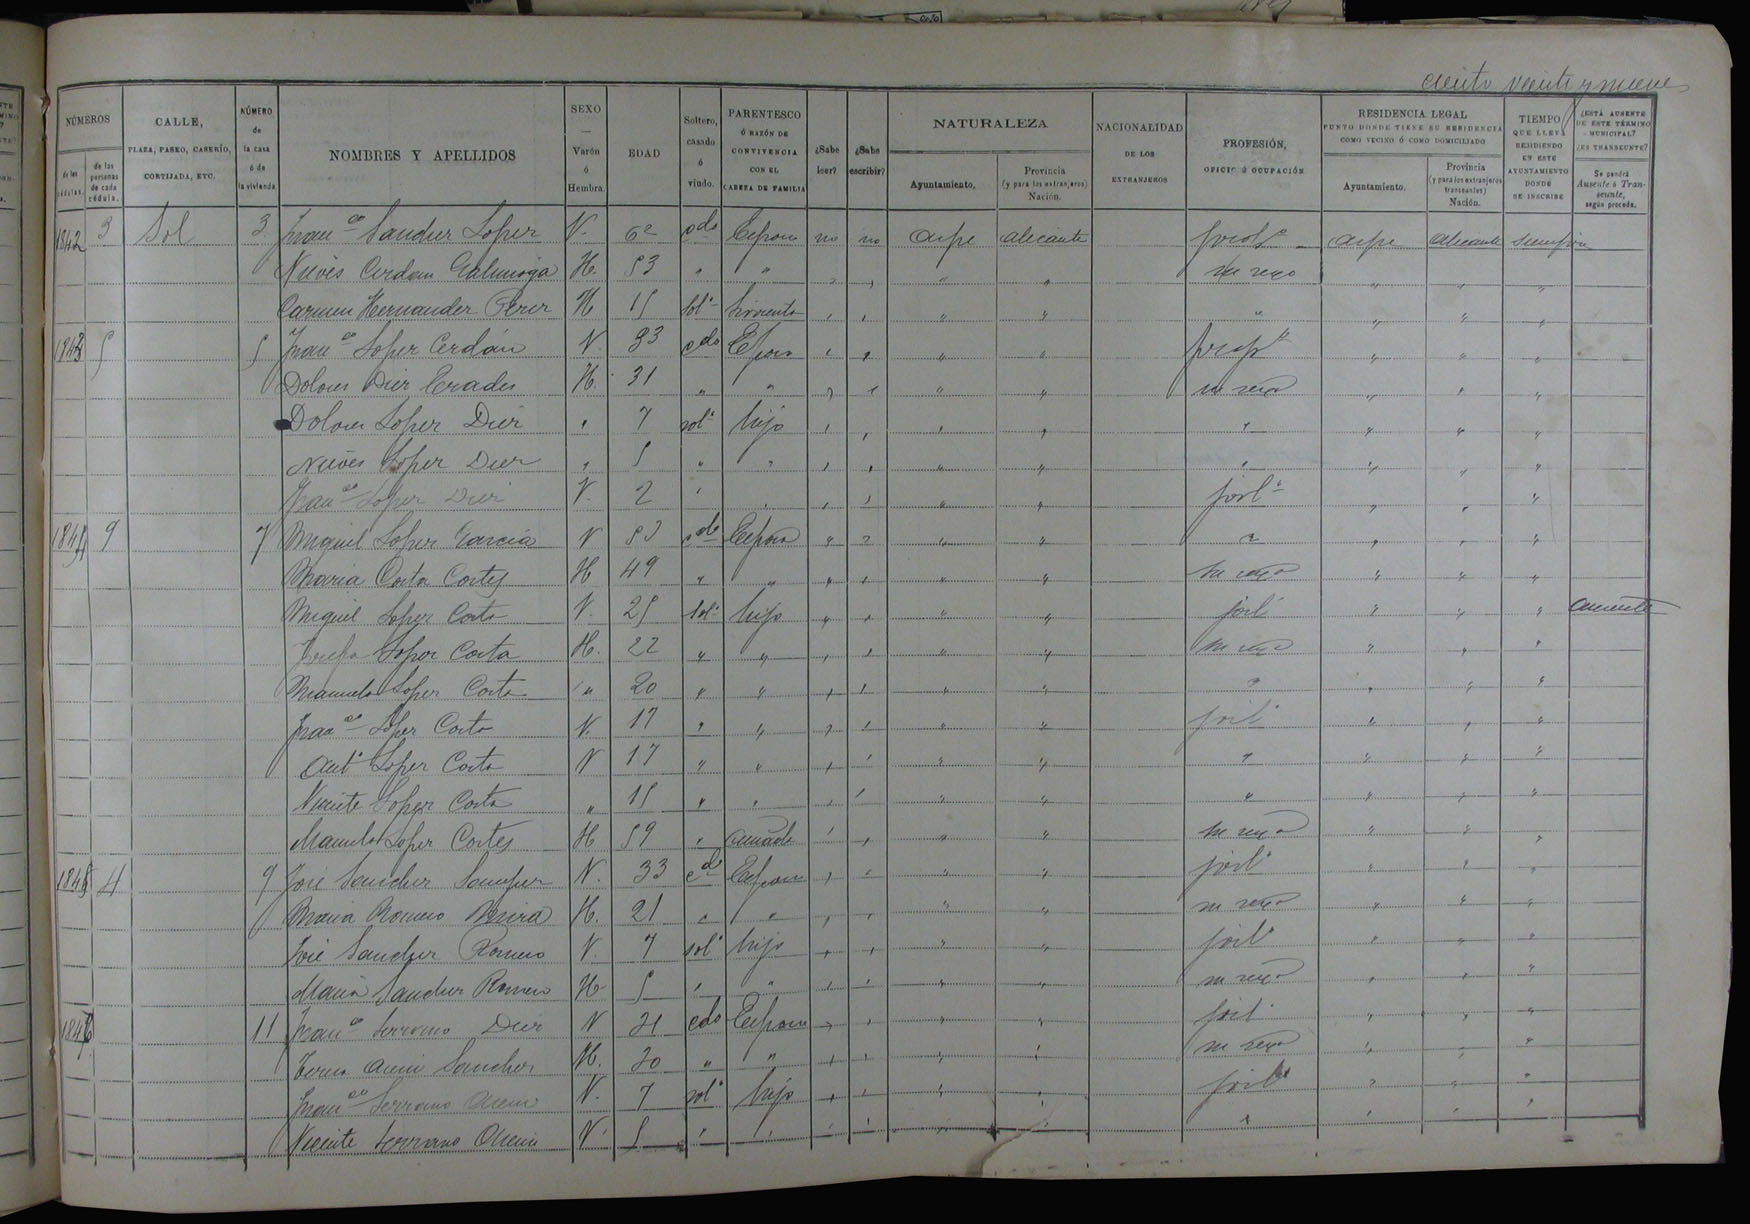 ciento veinte y nueve
NÚMEROS
de las cédulas.
de las personas de cada cédula.
CALLE,
PLAZA, PASEO, CASERÍO,
CORTIJADA, ETC.
NÚMERO de la casa ó de la vivienda
NOMBRES Y APELLIDOS
SEXO — Varón ó Hembra.
EDAD
Soltero, casado ó viudo.
PARENTESCO Ó RAZÓN DE CONVIVENCIA CON EL CABEZA DE FAMILIA
¿Sabe leer?
¿Sabe escribir?
NATURALEZA
Ayuntamiento.
Provincia (y para los extranjeros) Nación.
NACIONALIDAD DE LOS EXTRANJEROS
PROFESIÓN, OFICIO Ú OCUPACIÓN
RESIDENCIA LEGAL
PUNTO DONDE TIENE SU RESIDENCIA COMO VECINO Ó COMO DOMICILIADO
Ayuntamiento.
Provincia (y para los extranjeros transeuntes) Nación.
TIEMPO QUE LLEVA RESIDIENDO EN ESTE AYUNTAMIENTO DONDE SE INSCRIBE
¿ESTÁ AUSENTE DE ESTE TÉRMINO MUNICIPAL? ¿ES TRANSEUNTE?
Se pondrá Ausente ó Transeunte, según proceda.
1842 3 Sol 3 Franco Sanchez Lopez V. 62 cdo Esposo no no Aspe Alicante Aspe Alicante siempre
Nieves Cerdan H. 53 " " " " " " su sexo " " "
Carmen Hernandez Perez H 15 solª Sirvienta " " " " " " " "
1843 5 5 Franco Lopez Cerdán V 33 cdo Esposo " " " " " " "
Dolores Diez H. 31 " " " " " " su sexo " " "
Dolores Lopez Diez " 7 solª hijo " " " " " " " "
Nieves Lopez Diez " 5 " " " " " " " " " "
Franco Lopez Diez V. 2 " " " " " " jorlº " " "
1844 9 7 Miguel Lopez Garcia V 53 cdo Esposo " " " " " " " "
Maria Cortes H 49 " " " " " " su sexo " " "
Miguel Lopez V. 25 solº hijo " " " " jorlº " " " ausente
Josefa Lopez H. 22 " " " " " " su sexo " " "
Manuela Lopez " 20 " " " " " " " " " "
Franco Lopez V. 17 " " " " " " jorlº " " "
Antº Lopez V 17 " " " " " " " " " "
Vicente Lopez " 15 " " " " " " " " " "
Manuela Lopez Cortes H 59 " cuñada " " " " su sexo " " "
1845 4 9 José Sanchez V. 33 cdo Esposo " " " " jorlº " " "
Maria Romero H. 21 " " " " " " su sexo " " "
José Sanchez Romero V. 7 solº hijo " " " " jorlº " " "
Maria Sanchez Romero H 5 " " " " " " su sexo " " "
1846 11 Franco Serrano Diez V 31 cdo Esposo " " " " jorlº " " "
Sanchez H. 30 " " " " " " su sexo " " "
Franco Serrano V. 7 solº hijo " " " " jorlº " " "
Vicente Serrano V 5 " " " " " " " " " "